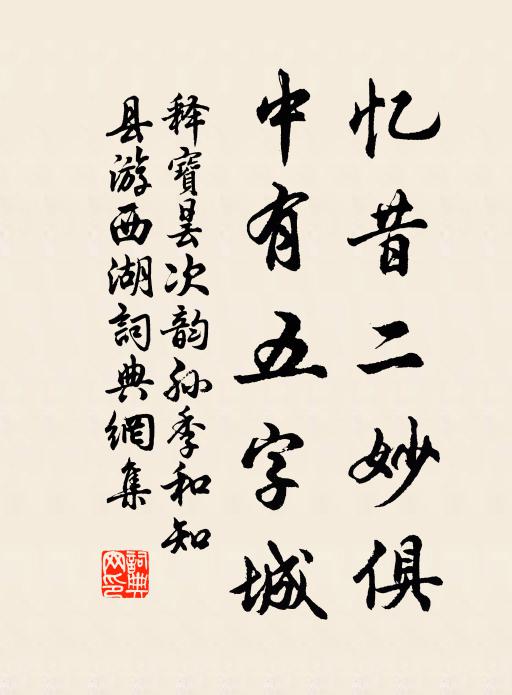 忆昔二妙俱
中有五字城
释寶昙次韵孙季和知
县游西湖詞典網集
詞典
网印